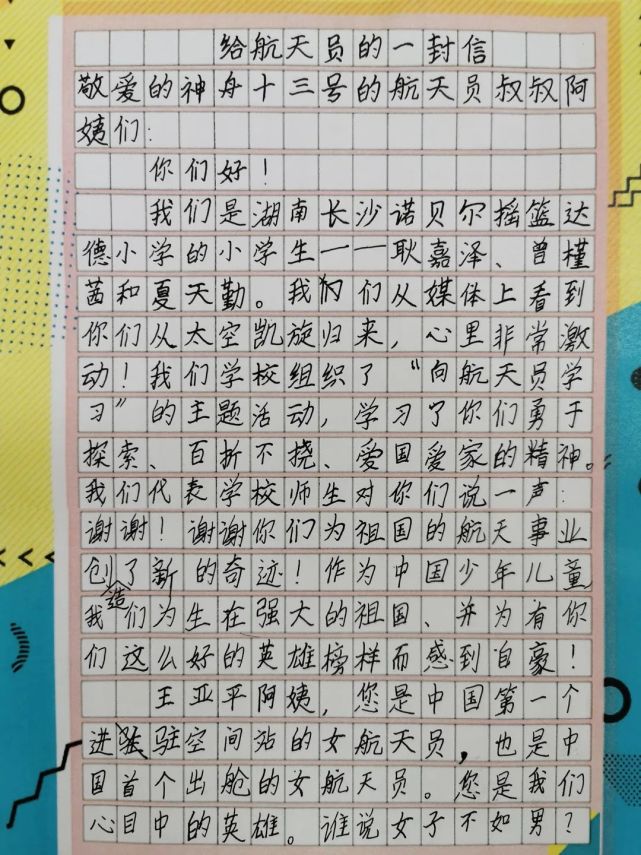 给航天员的一封信
敬爱的神舟十三号的航天员叔叔阿
姨们:
你们好!
我们是湖南长沙诺贝尔摇篮达
德小学的小学生——耿嘉泽、曾槿
茜和夏天勤。我们从媒体上看到
你们从太空凯旋归来,心里非常激
动!我们学校组织了“向航天员学
习”的主题活动,学习了你们勇于
探索、百折不挠、爱国爱家的精神。
我们代表学校师生对你们说一声:
谢谢!谢谢你们为祖国的航天事业
创造了新的奇迹!作为中国少年儿童
我们为生在强大的祖国、并为有你
们这么好的英雄榜样而感到自豪!
王亚平阿姨,您是中国第一个
进驻空间站的女航天员,也是中
国首个出舱的女航天员。您是我们
心目中的英雄。谁说女子不如男?